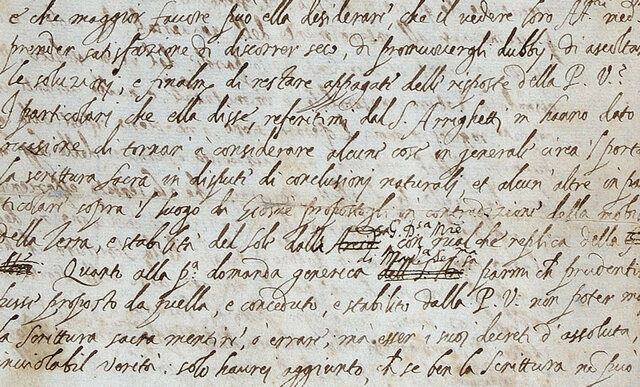 e che maggior favore può ella desiderare, che il vedere loro Alt.ze med
prender satisfazione di discorrer seco, di promuovergli dubbij, di ascoltar
le soluzioni, e finalm.te di restare appagati delle risposte della P. V.?
I particolari che ella disse, referitimi dal S. Arrighetti, m hanno dato
occasione di tornare à considerare alcune cose in generale circa 'l portar
la scrittura sacra in dispute di conclusioni naturali, et alcun' altre in par
ticolare sopra 'l luogo di Giosuè propostogli in contradizione della mobi
della Terra, e stabilità del Sole dalla G. D.sa M.re con qualche replica della
di M. la Ser.sa
Quanto alla p.a domanda generica parmi ch prudenti
fusse proposto da quella, e conceduto, e stabilito dalla P. V: non poter m
la Scrittura sacra mentire, ò errare, mà esser i suoi decreti d'assoluta,
inviolabil verità: solo haurei aggiunto, ch se ben la Scrittura nò può